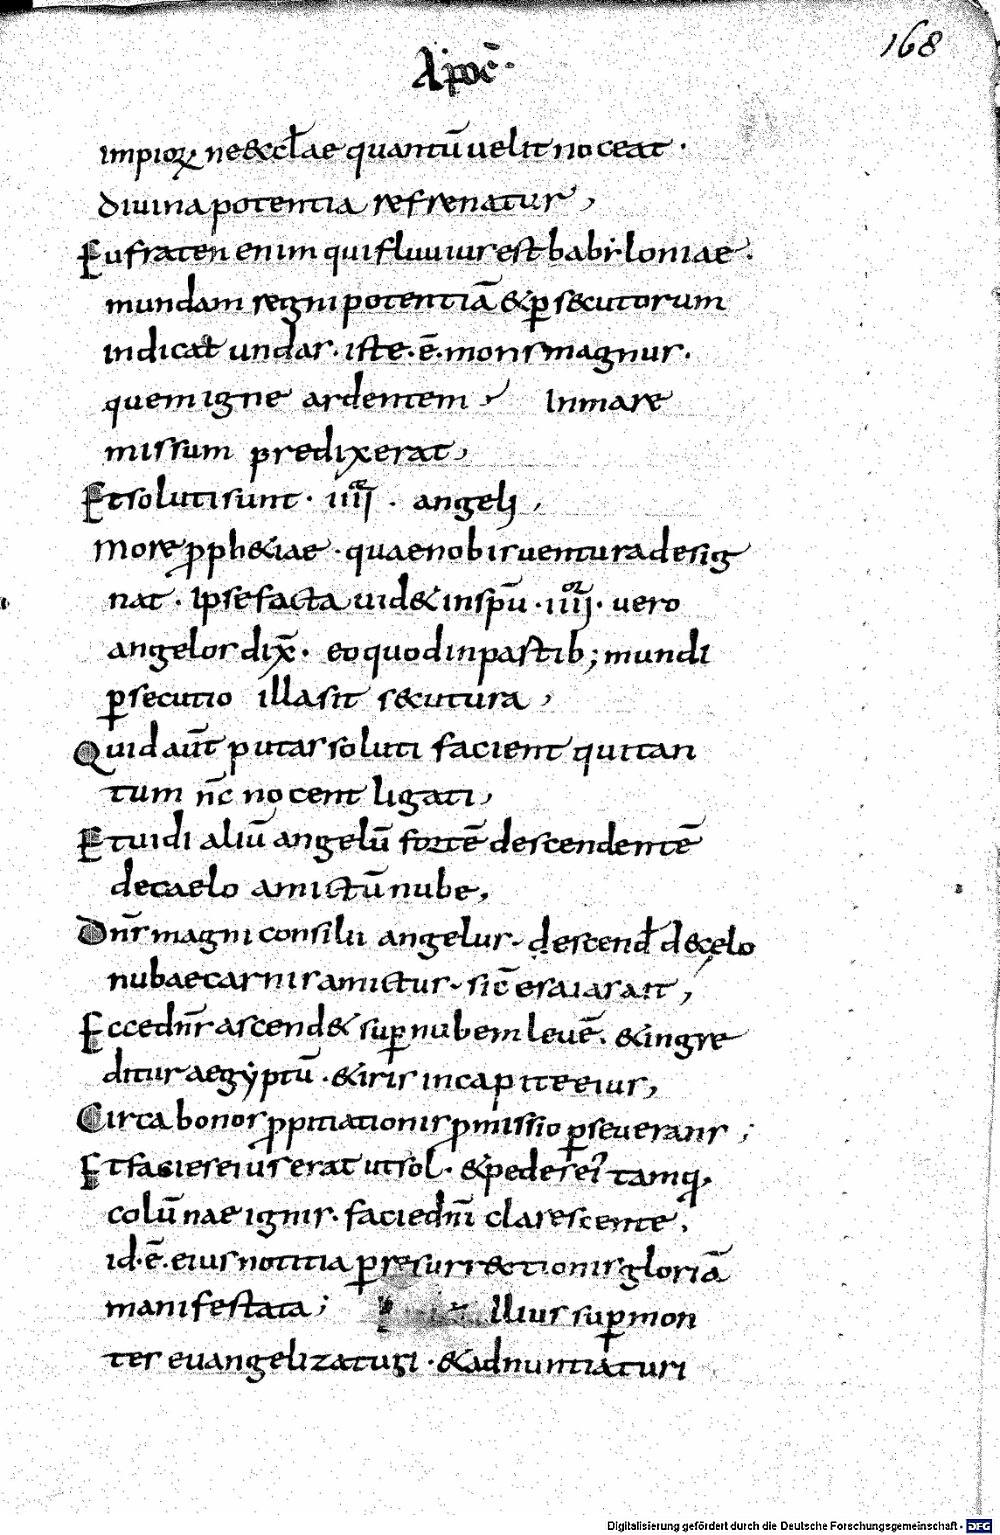 168
Apoc̄.
impioꝝ. ne&ccł̄ae quantū uelit noceat.
diuina potentia refrenatur,
Eufraten enim qui fluuius est babyloniae.
mundani regni potentiā & ꝑs&cutorum
indicat undas. iste. ē. mons magnus.
quem igne ardentem, In mare
missum predixerat,
Et soluti sunt. iiij. angeli,
More ꝓph&iae. quae nobis uentura desig
nat. Ipse facta uid& in sp̄u. iiij. uero
angelos dix̄. eo quod in partib; mundi
ꝑsecutio illa sit secutura,
Quid aūt putas soluti facient qui tan
tum nc̄ nocent ligati,
Et uidi aliū angelū fortē descendentē
de caelo amictū nube,
Dn̄s magni consilii angelus. descend̄ de celo
nubae carnis amictus. sic̄ esaias ait,
Ecce dn̄s ascend& suꝑ nubem leuē. & ingre
ditur aegyptū. & iris in capite eius,
Circa bonos ꝓpitiationis ꝓmissio ꝑseuerans;
Et facies eius erat ut sol. & pedes ei' tamq̄.
colūnae ignis. facie dn̄i clarescente,
id. ē. eius notitia ꝑ resurrectionis gloriā
manifestata; Illius suꝑ mon
tes euangelizaturi. & adnuntiaturi
Digitalisierung gefördert durch die Deutsche Forschungsgemeinschaft - DFG